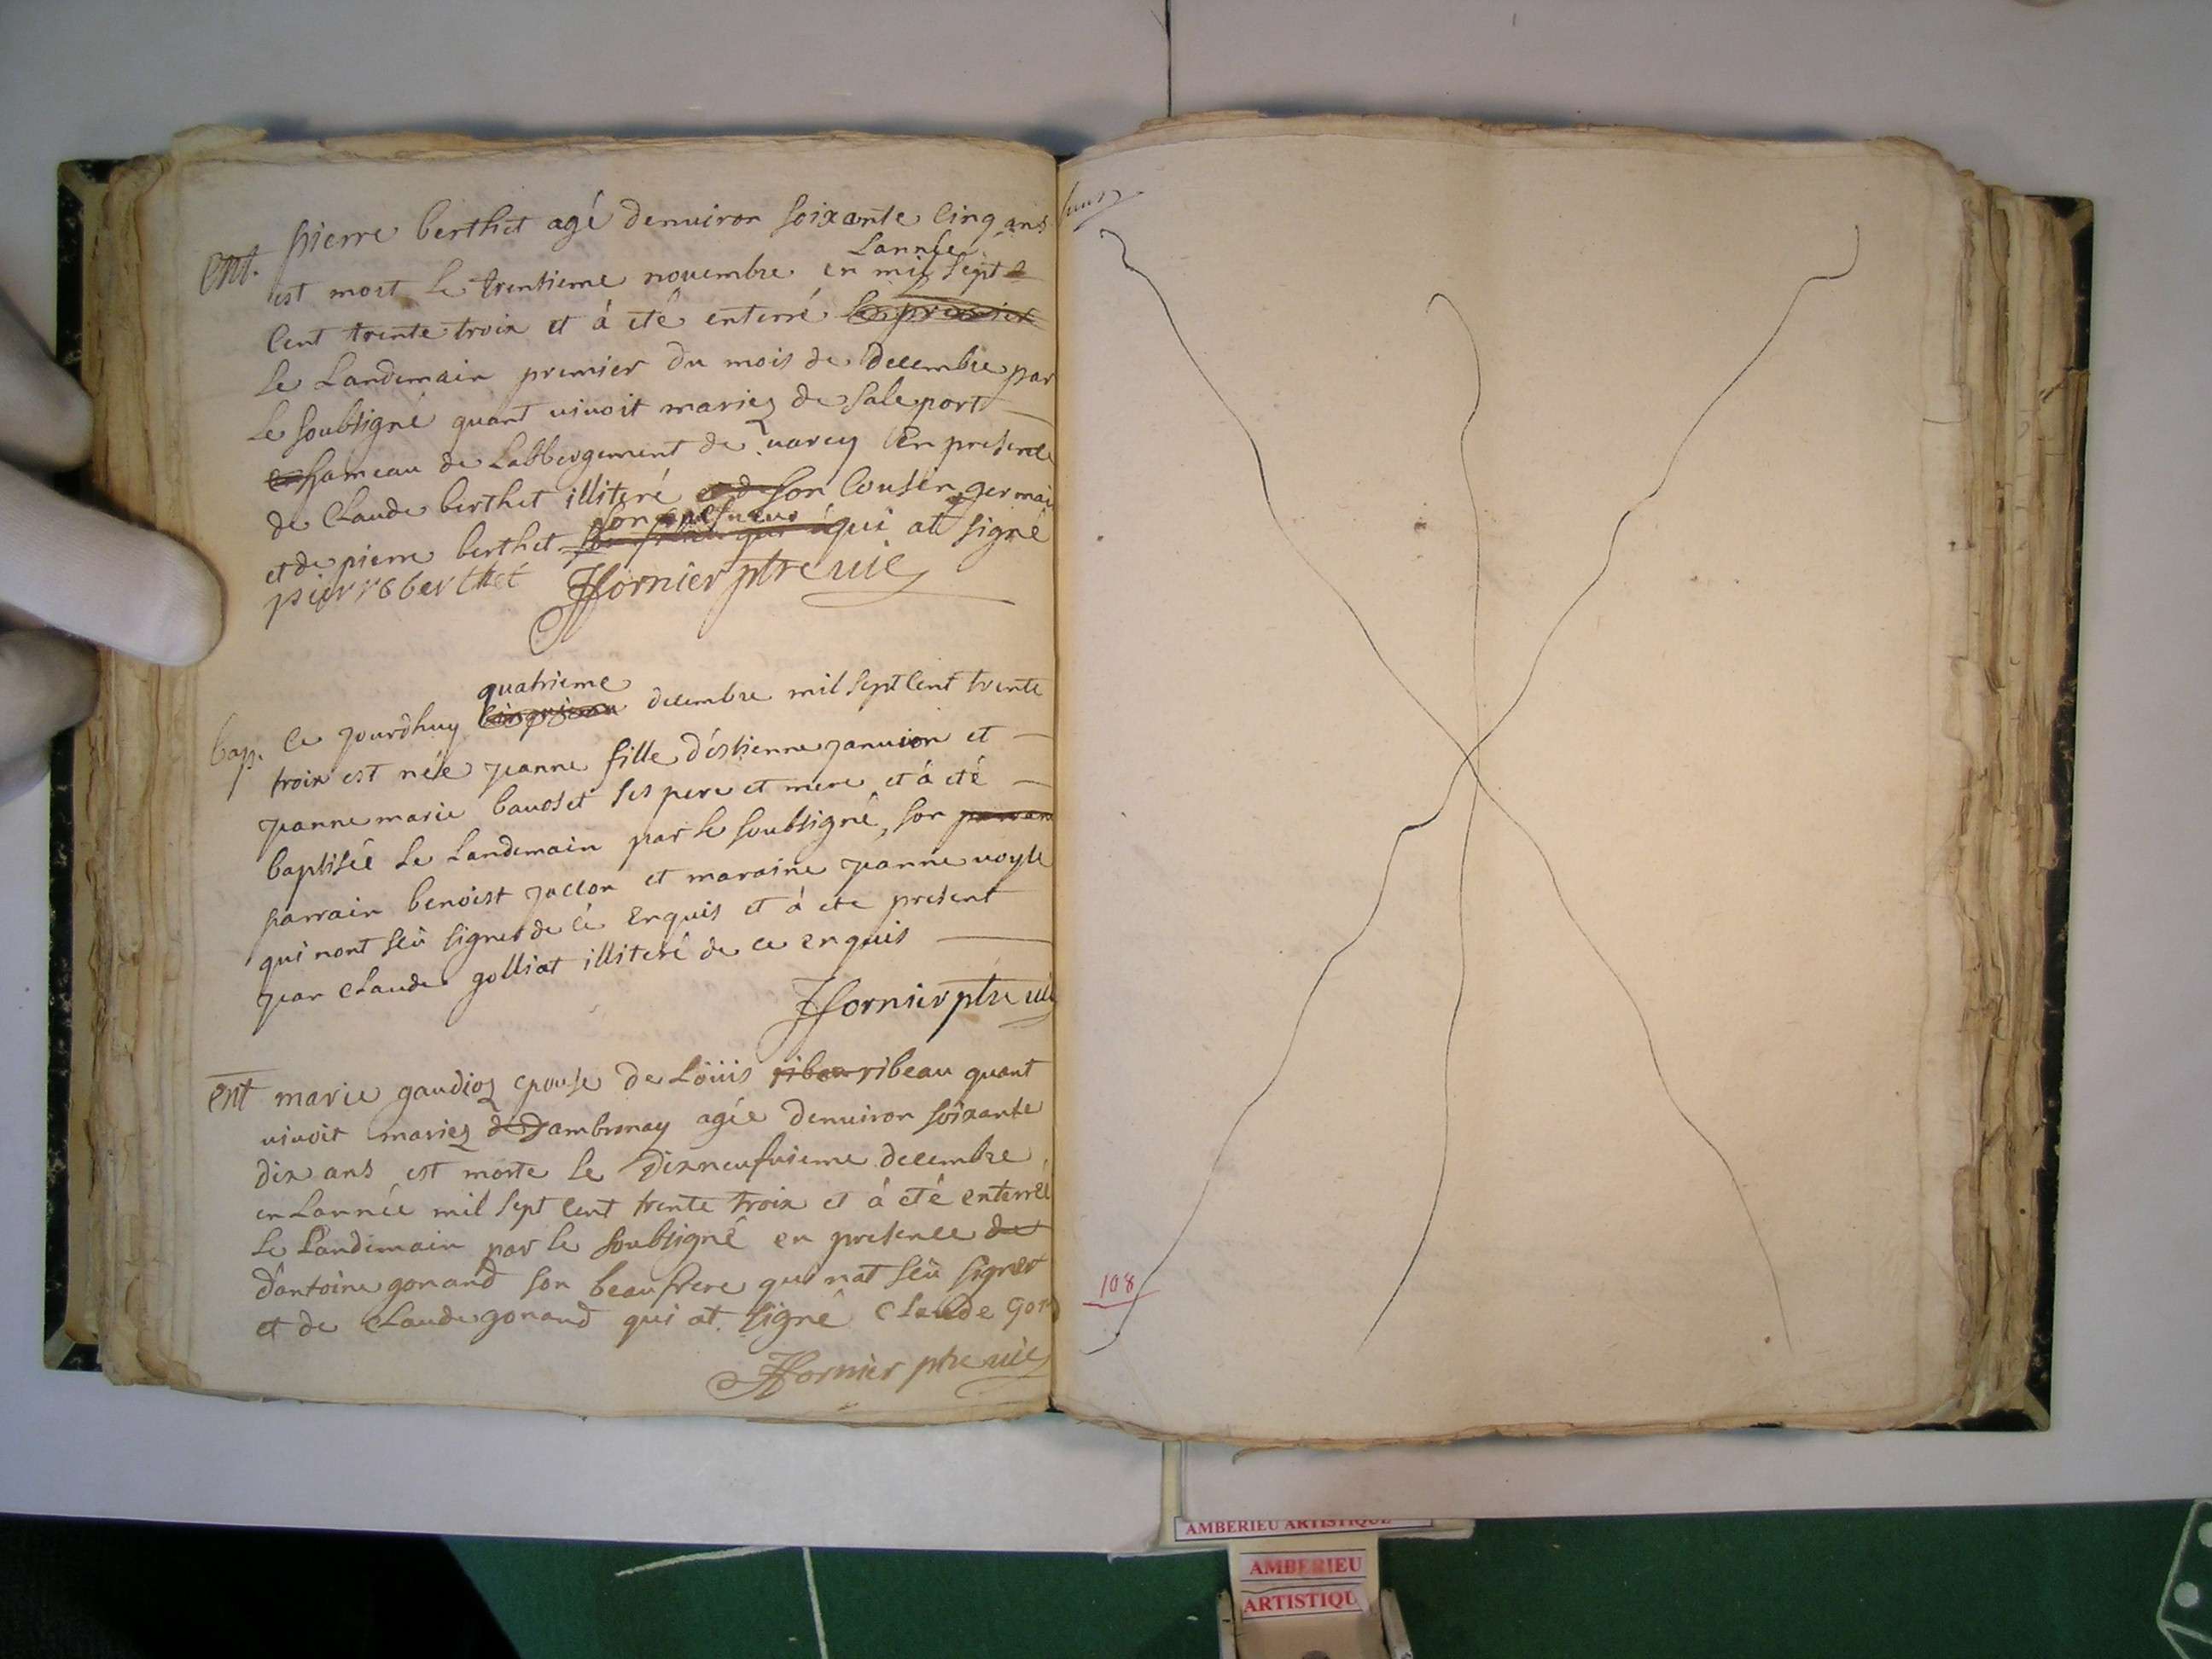 pierre berthet agé denuiron soixante cinq ans
ent.
Lannée
est mort le trentieme nouembre en mil sept
cent trente troix et à eté enterré le premier
le Landemain premier du mois de decembre par
le soubsigné quant uiuoit mariez de saleport
hameau de Labbergement de uarey en presence
de Claude berthet illiteré et de son cousin germai
son
et de pierre berthet qui at signé
pierre berthet JJfornier ptre uic
quatrieme
bap. ce jourdhuy cinquieme decembre mil sept cent trente
troix est née jeanne fille d'estienne januion et
jeanne marie bauoset ses pere et mere et à eté
baptisée le Landemain par le soubsigné, son parrain
parrain benoist jaccon et maraine jeanne uoyle
qui nont sëu signer de cé enquis et à ete present
jean claude golliat illiteré de ce enquis
JJfornier ptre uic
ent marie gaudioz epouse de Löüis ribeau ribeau quant
uiuoit mariez de Dambrunay agée denuiron soixante
dix ans est morte le dixneufuieme decembre
en Lannée mil sept cent trente troix et à eté enterreé
le Landemain par le soubsigné en presence de
d'antoine gonand son beaufrere qui nat sëu signer
et de Claude gonand qui at signé Claude gon
JJfornier ptre uic
108
AMBERIEU ARTISTIQUE
AMBERIEU
ARTISTIQU